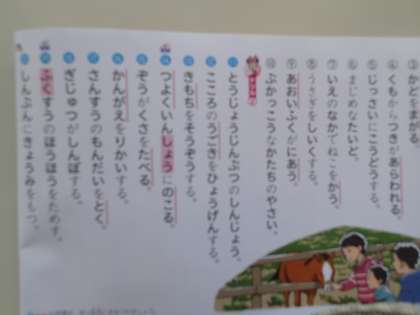 ③かどをまがる。
④くもからつきがあらわれる。
⑤じっさいにこうどうする。
⑥まじめなたいど。
⑦いえのなかでねこをかう。
⑧うさぎをしいくする。
⑨あおいふくがにあう。
⑩ぶかっこうなかたちのやさい。
とうじょうじんぶつのしんじょう。
こころのうごきをひょうげんする。
きもちをそうぞうする。
つよくいんしょうにのこる。
ぞうがくさをたべる。
かんがえをりかいする。
さんすうのもんだいをとく。
ぎじゅつがしんぽする。
ふくすうのほうほうをためす。
しんぶんにきょうみをもつ。